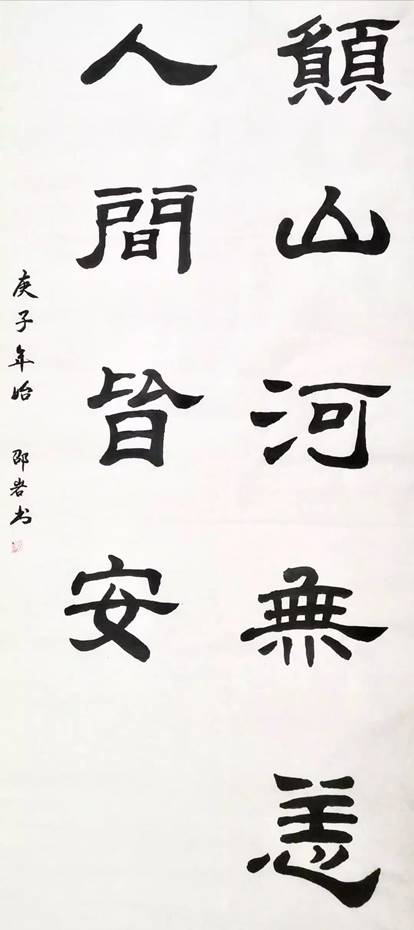 顠山河無恙
人間皆安
庚子年始 邵岩书